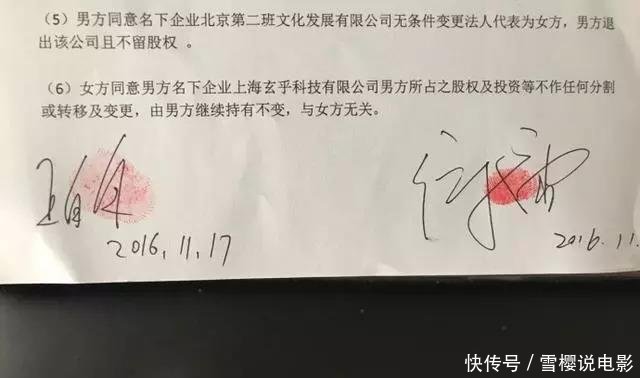 （5）男方同意名下企业北京第二班文化发展有限公司无条件变更法人代表为女方，男方退
出该公司且不留股权 。
（6）女方同意男方名下企业上海玄乎科技有限公司男方所占之股权及投资等不作任何分割
或转移及变更，由男方继续持有不变，与女方无关。
2016.11.17
2016.11.
快传号／雪樱说电影